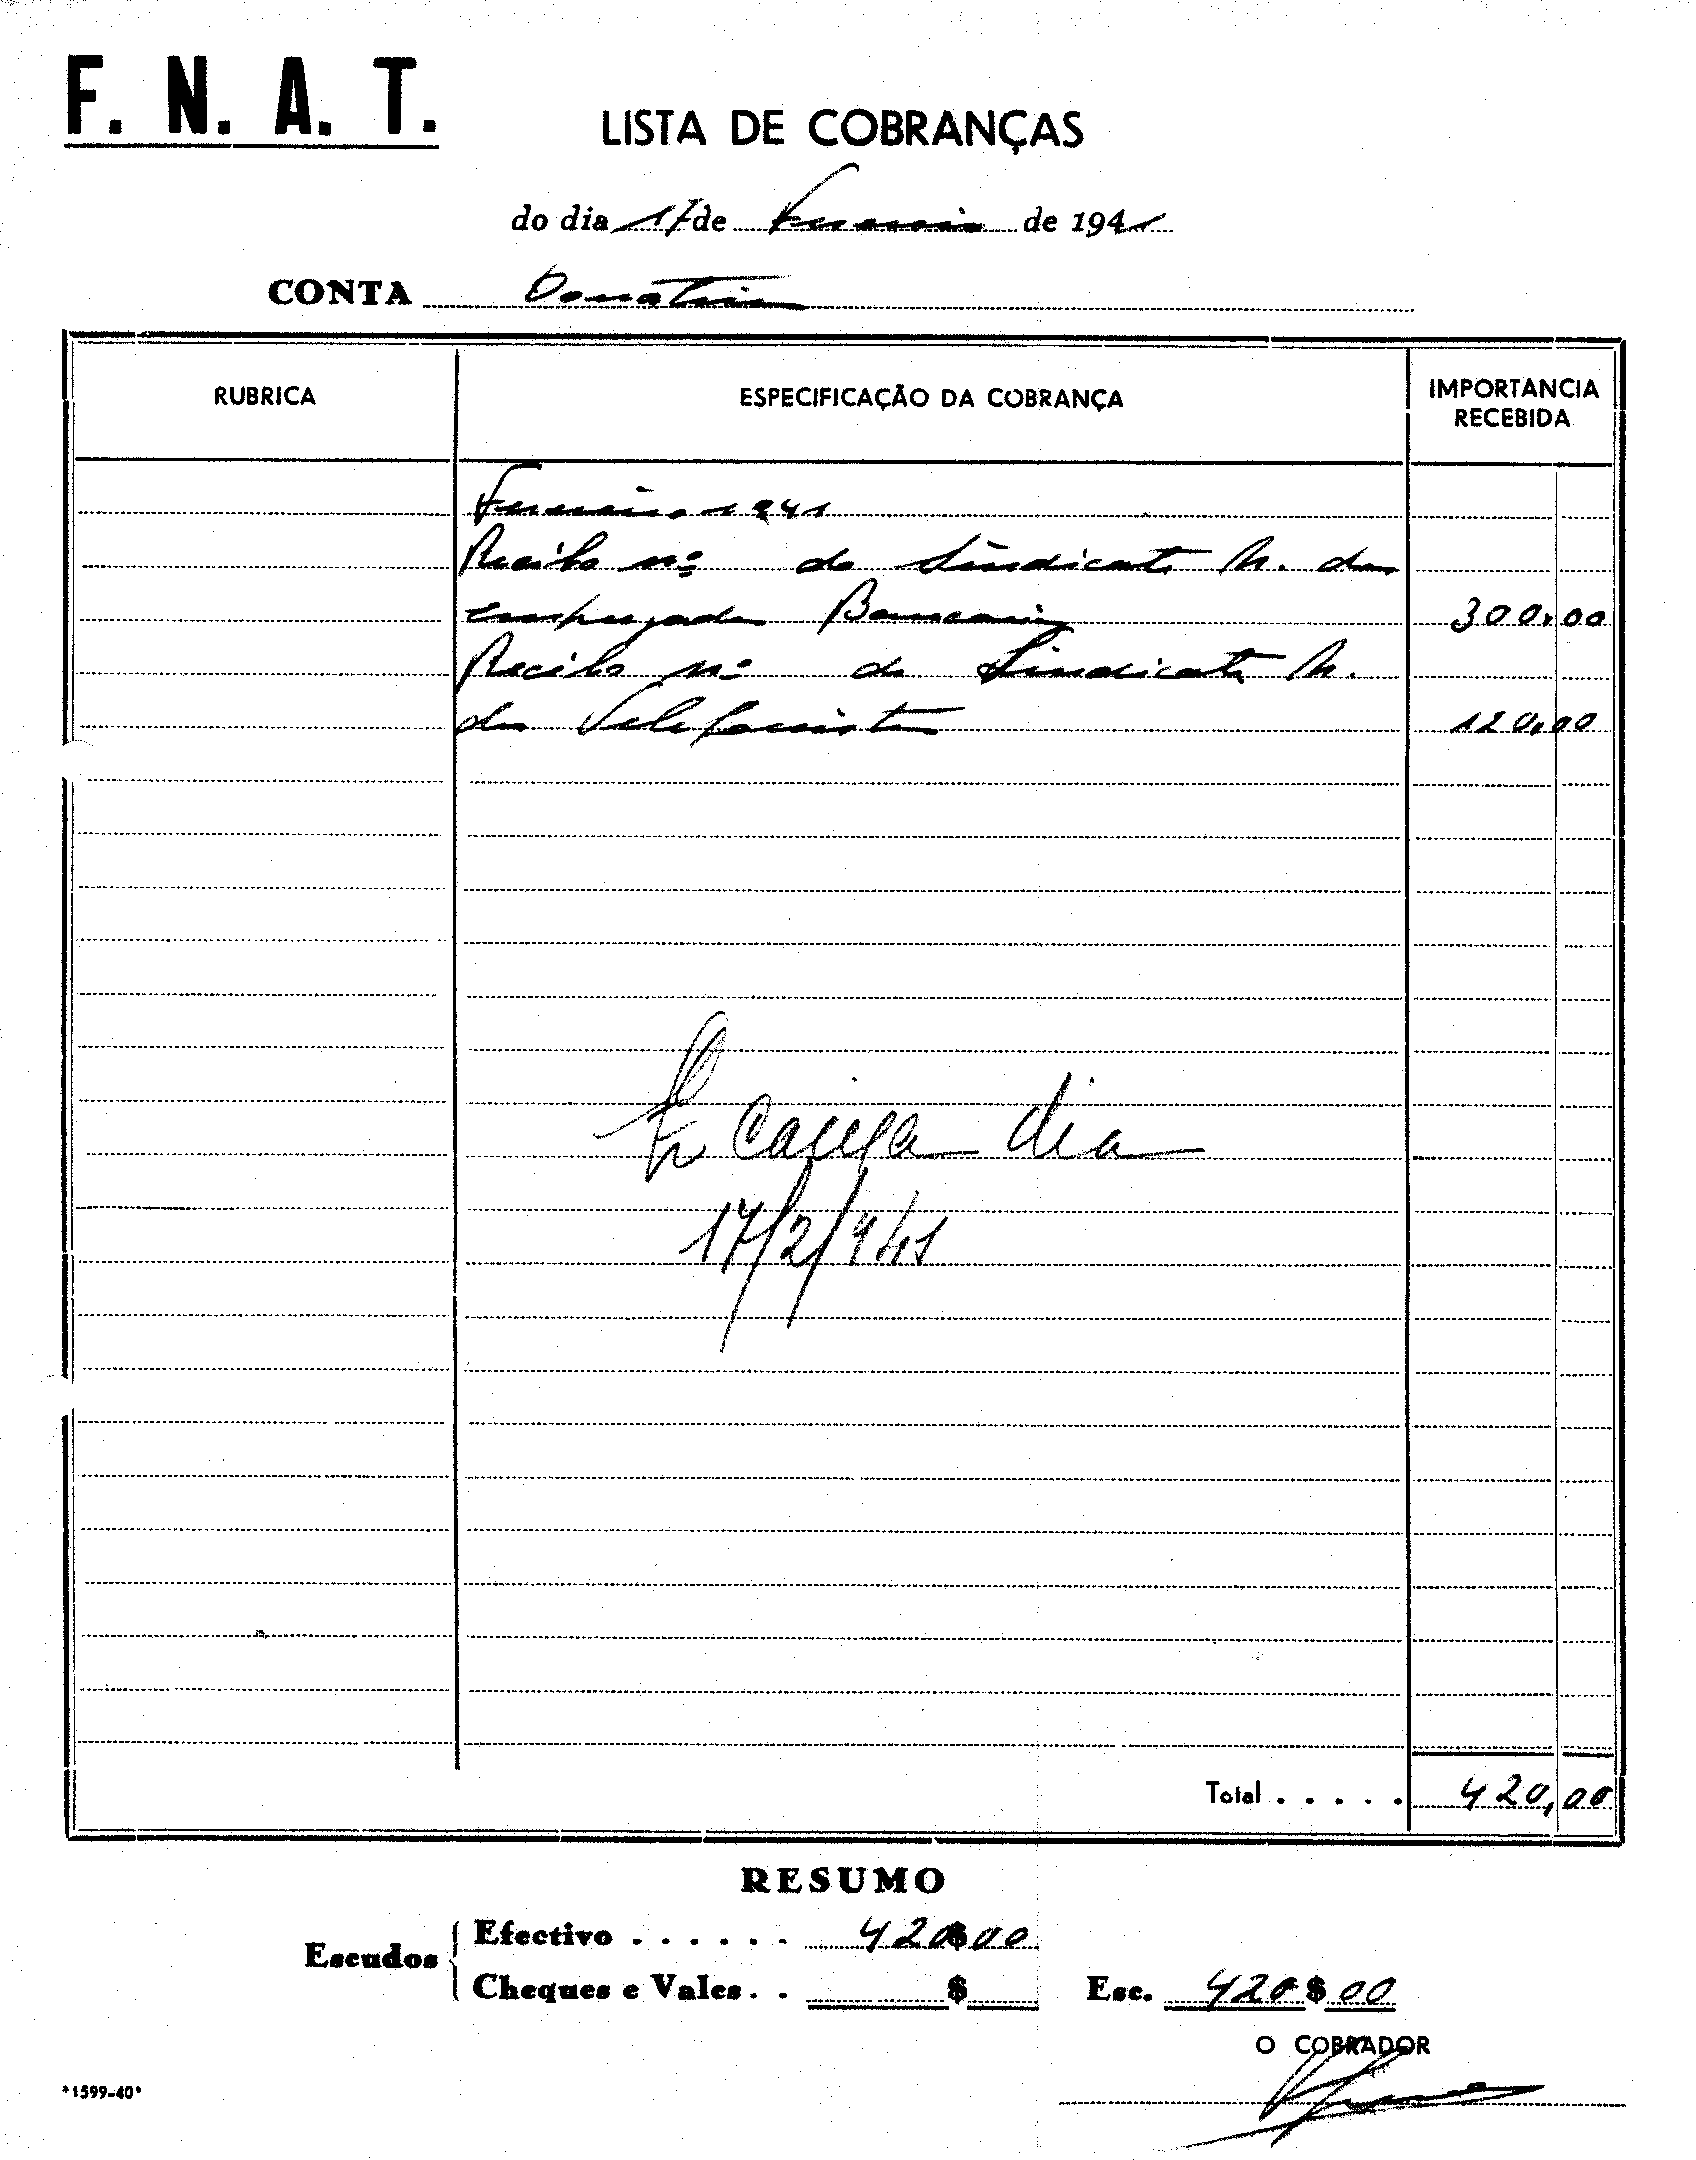 F. N. A. T.
LISTA DE COBRANÇAS
do dia 17 de Fevereiro de 1941
CONTA Donativos
RUBRICA ESPECIFICAÇÃO DA COBRANÇA IMPORTANCIA RECEBIDA
Fevereiro 1941
Recibo nº do Sindicato N. dos
empregados Bancarios 300,00
Recibo nº do Sindicato N.
dos Telefonistas 120,00
Caixa dia
17/2/941
Total . . . . . 420,00
RESUMO
Escudos
Efectivo . . . . . . 420$00
Cheques e Vales . . $ Esc. 420$00
O COBRADOR
*1599-40*